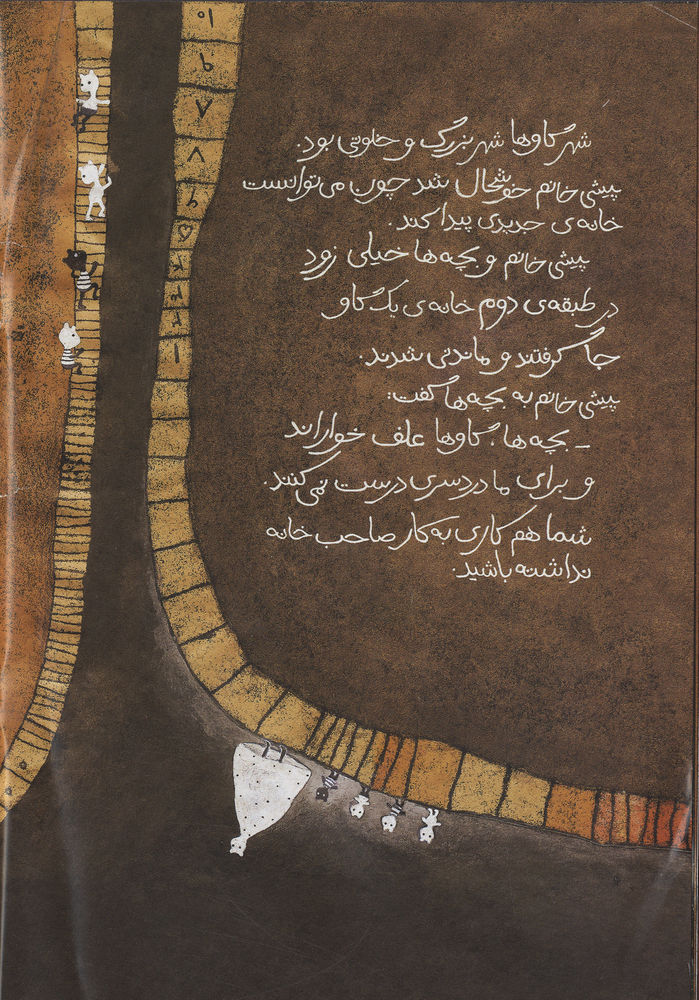 شهر گاوها شهر بزرگ و خلوتی بود.
پیشی خانم خوشحال شد چون می‌توانست
خانه‌ی جدیدی پیدا کند.
پیشی خانم و بچه‌ها خیلی زود
در طبقه‌ی دوم خانه‌ی یک گاو
جا گرفتند و ماندنی شدند.
پیشی خانم به بچه‌ها گفت:
ـ بچه‌ها، گاوها علف خواراند
و برای ما دردسری درست نمی‌کنند.
شما هم کاری به کار صاحب خانه
نداشته باشید.
۱۰
۹
۷
۸
۶
۵
۴
۳
۲
۱